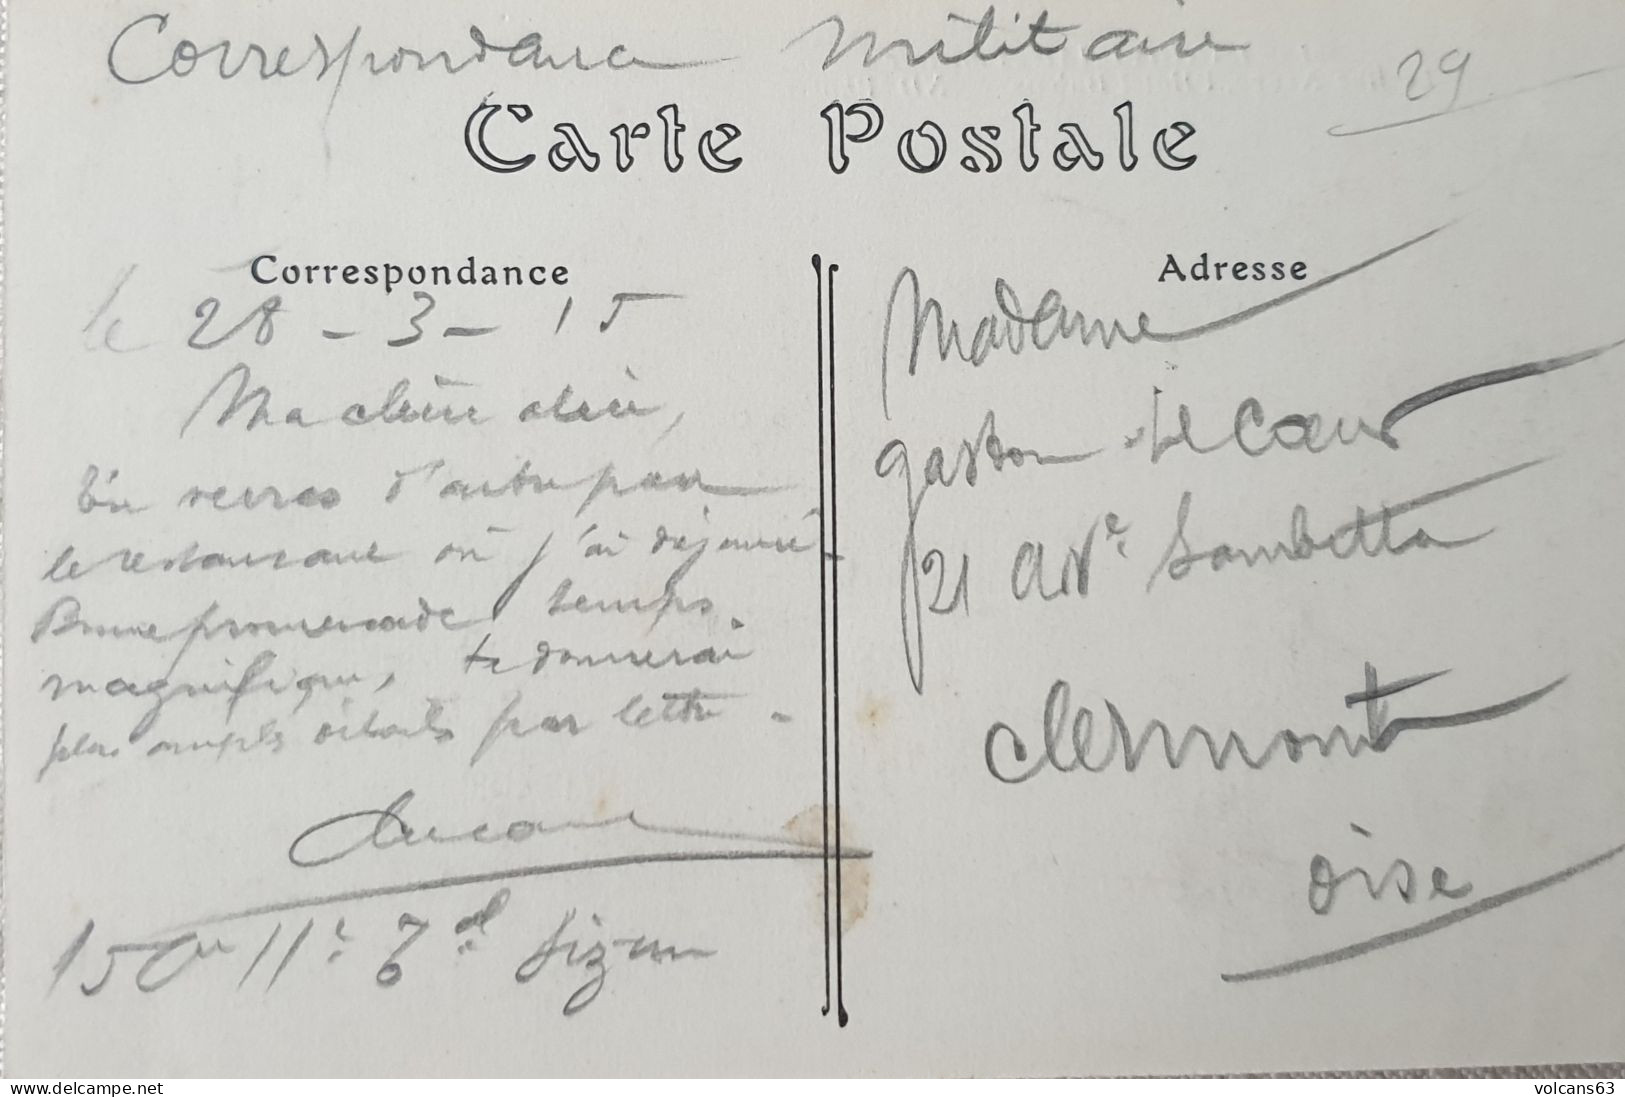 Correspondance Militaire
29
Carte Postale
Correspondance
le 28-3-15
Ma chère
Tu verras d'autre part
le restaurant où j'ai déjeuné.
Bonne promenade temps
magnifique, te donnerai
plus amples détails par lettre.
150 11e
Adresse
Madame
gaston Lecoeur
21 Ave Gambetta
Clermont
oise
delcampe.net
volcans63